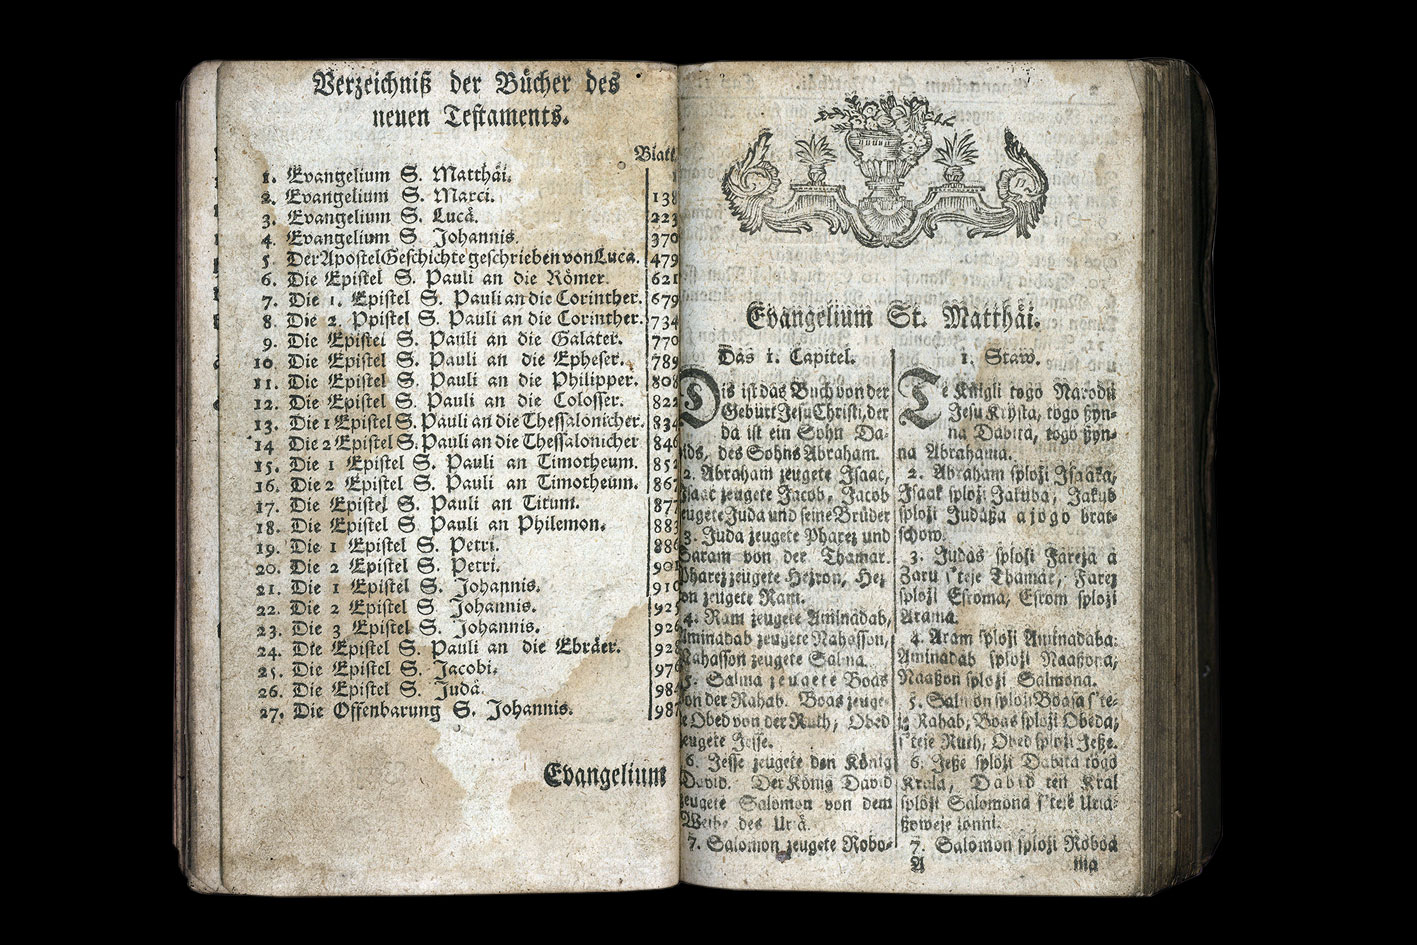 Verzeichniß der Bücher des
neuen Testaments.
Blatt
1. Evangelium S. Matthäi. 1
2. Evangelium S. Marci. 138
3. Evangelium S. Lucä. 223
4. Evangelium S. Johannis. 370
5. Der Apostel Geschichte geschrieben von Luca. 479
6. Die Epistel S. Pauli an die Römer. 621
7. Die 1. Epistel S. Pauli an die Corinther. 679
8. Die 2. Ppistel S. Pauli an die Corinther. 734
9. Die Epistel S. Pauli an die Galater. 770
10. Die Epistel S. Pauli an die Epheser. 789
11. Die Epistel S. Pauli an die Philipper. 808
12. Die Epistel S. Pauli an die Colosser. 822
13. Die 1 Epistel S. Pauli an die Thessalonicher. 834
14 Die 2 Epistel S. Pauli an die Thessalonicher 846
15. Die 1 Epistel S. Pauli an Timotheum. 852
16. Die 2 Epistel S. Pauli an Timotheum. 867
17. Die Epistel S. Pauli an Titum. 877
18. Die Epistel S. Pauli an Philemon. 883
19. Die 1 Epistel S. Petri. 886
20. Die 2 Epistel S. Petri. 901
21. Die 1 Epistel S. Johannis. 910
22. Die 2 Epistel S. Johannis. 925
23. Die 3 Epistel S. Johannis. 926
24. Die Epistel S. Pauli an die Ebräer. 928
25. Die Epistel S. Jacobi. 976
26. Die Epistel S. Judä. 984
27. Die Offenbarung S. Johannis. 987
Evangelium
Evangelium St. Matthäi.
Das 1. Capitel.
Dis ist das Buch von der
Geburt Jesu Christi, der
da ist ein Sohn Da-
vids, des Sohns Abraham.
2. Abraham zeugete Isaac,
Isaac zeugete Jacob, Jacob
zeugete Juda und seine Brüder
3. Juda zeugete Pharez und
Saram von der Thamar.
Pharez zeugete Hezron, Hez
ron zeugete Ram.
4. Ram zeugete Aminadab,
Aminadab zeugete Nahasson,
Nahasson zeugete Salma.
5. Salma zeugete Boas
von der Rahab. Boas zeuge-
te Obed von der Ruth, Obed
zeugete Jesse.
6. Jesse zeugete den König
David. Der König David
zeugete Salomon von dem
Weibe des Uriä.
7. Salomon zeugete Robo-
1. Staw.
Te Knigli togo Narodu
Jesu Krysta, togo ßyn-
na Dabita, togo ßyn-
na Abrahama.
2. Abraham sploži Isaaka,
Isaak sploži Jakuba, Jakub
sploži Judaßa a jogo brat-
schow.
3. Judas sploži Fareza a
Zaru s'teje Thamar, Farez
sploži Esroma, Esrom sploži
Arama.
4. Aram sploži Aminadaba.
Aminadab sploži Naaßona,
Naaßon sploži Salmona.
5. Salmon sploži Boasa s'te-
je Rahab, Boas sploži Obeda,
s'teje Ruth, Obed sploži Jeße.
6. Jeße sploži Dabita togo
Krala, Dabid ten Kral
sploži Salomona s'teje Uria-
ßoweje
7. Salomon sploži Roboa
A ma